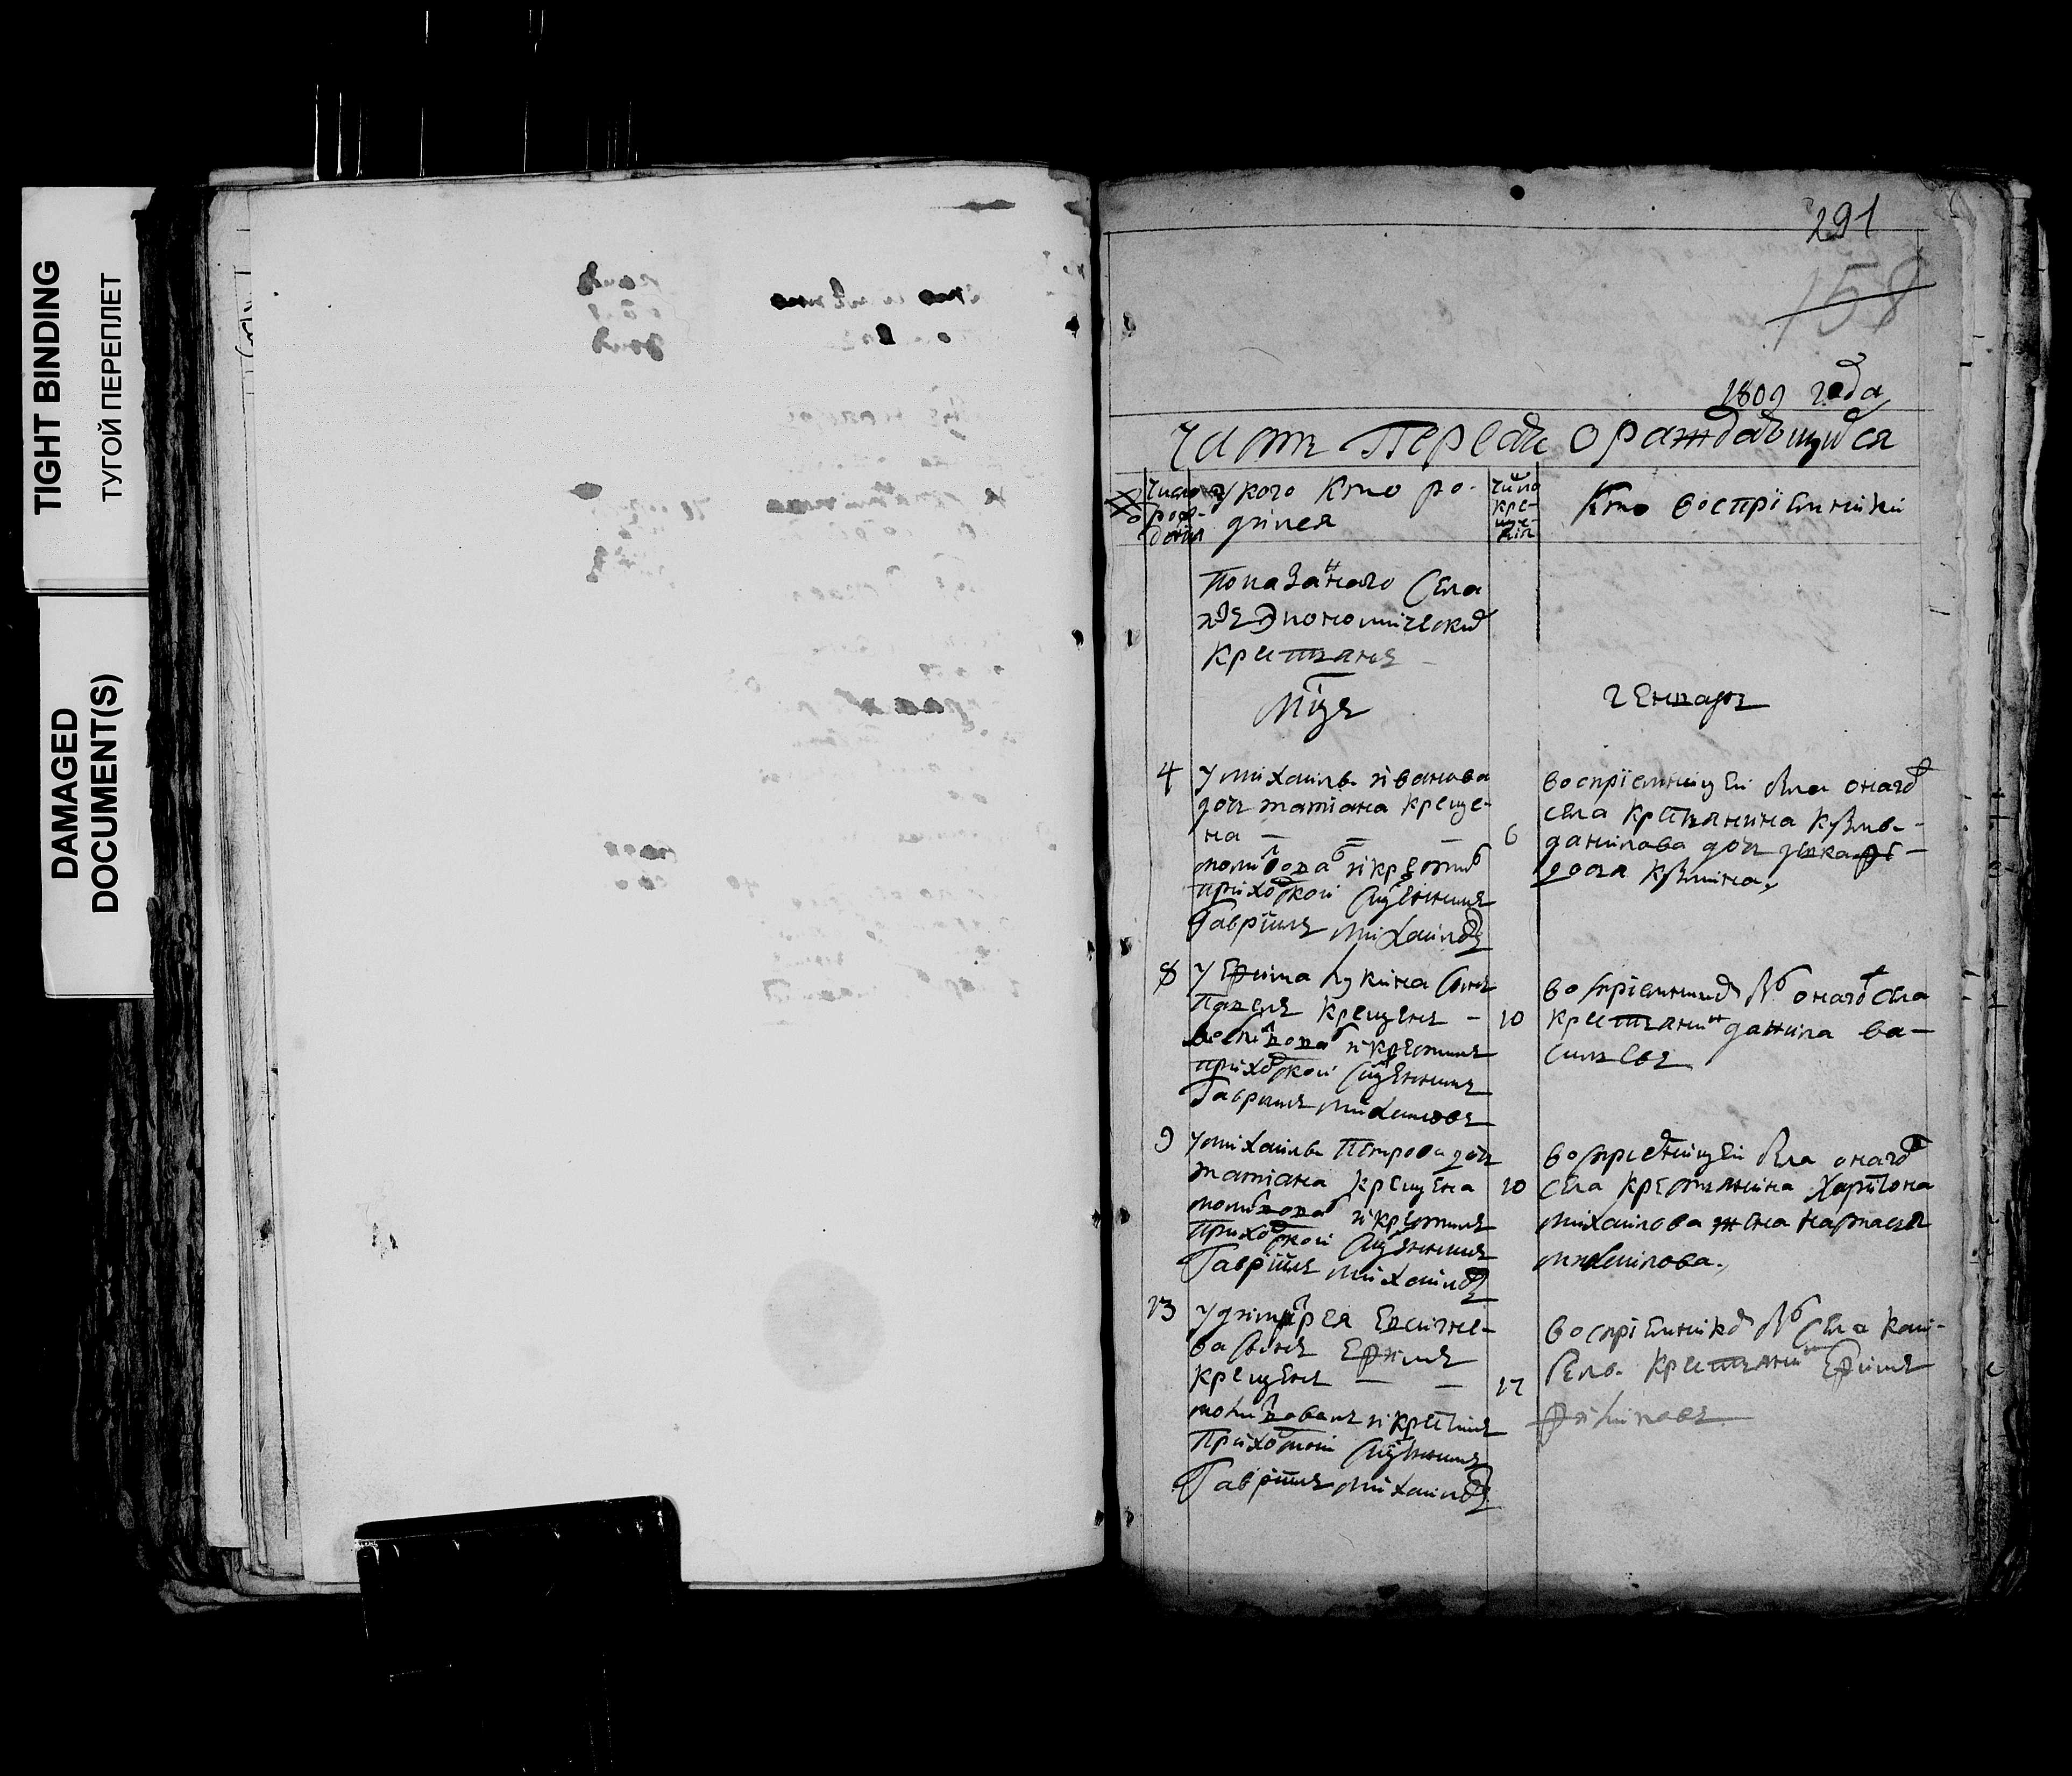 TIGHT BINDING
ТУГОЙ ПЕРЕПЛЕТ
DAMAGED
DOCUMENT(S)
291
158
1809 года
Часть Первая о раждавшихся
число рождения
у кого кто ро-
дился
число крещения
Кто восприемники
Показаннаго села
Экономическия
крестьяня
мцъ
генварь
4
у михаила иванова
дочь татиана креще-
на
молитвовал и крестил
приходской священникъ
Гаврiилъ михаиловъ
6
восприемницей была онаго
села крестьянина
данилова дочь
8
у Ефима лукина сынъ
Павелъ крещенъ
молитвовал и крестилъ
приходской священникъ
Гаврiилъ михаиловъ
10
восприемником был онаго села
крестьянин данила ва-
сильевъ
9
у михаила Петрова дочь
татиана крещена
молитвовал и крестилъ
приходской священникъ
Гаврiилъ михаиловъ
10
восприемницей была онаго
села крестьянина Харитона
михаилова жена настасья
михаилова
13
у димитрея
сынъ Ефимъ
крещенъ
молитвовалъ и крестилъ
приходской священникъ
Гаврiилъ михаиловъ
17
восприемником был села
крестьянин Ефимъ
филиповъ